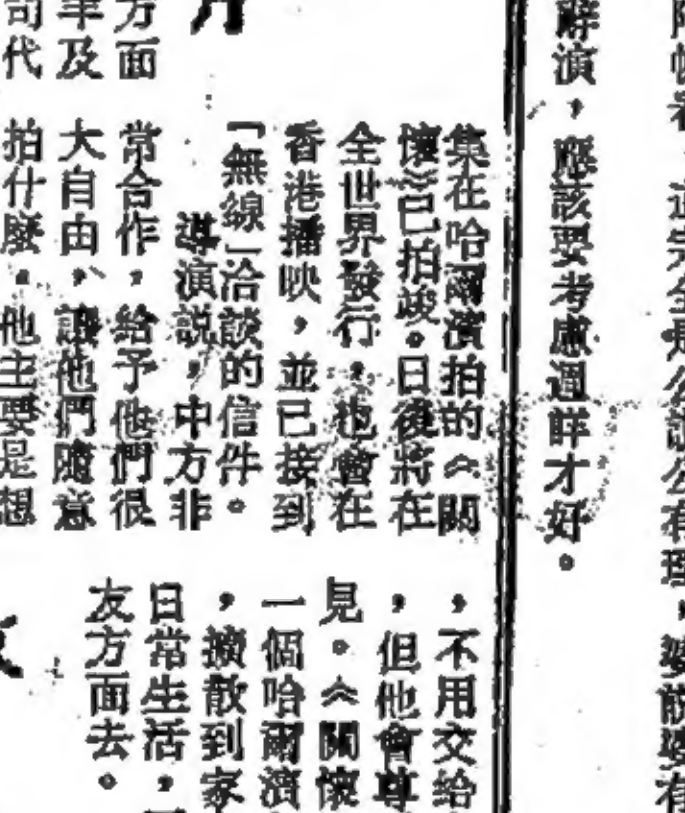 公說公有理，婆說婆有
辭演，應該要考慮週詳才好。
集在哈爾濱拍的《關
懷》已拍竣。日後將在
全世界發行，也會在
香港播映，並已接到
「無線」洽談的信件。
導演說，中方非
常合作，給予他們很
大自由，讓他們隨意
拍什麼。他主要是想
方面
及
司代
，不用交給
，但他會尊
見。《關懷
一個哈爾濱
，擴散到家
日常生活，
友方面去。